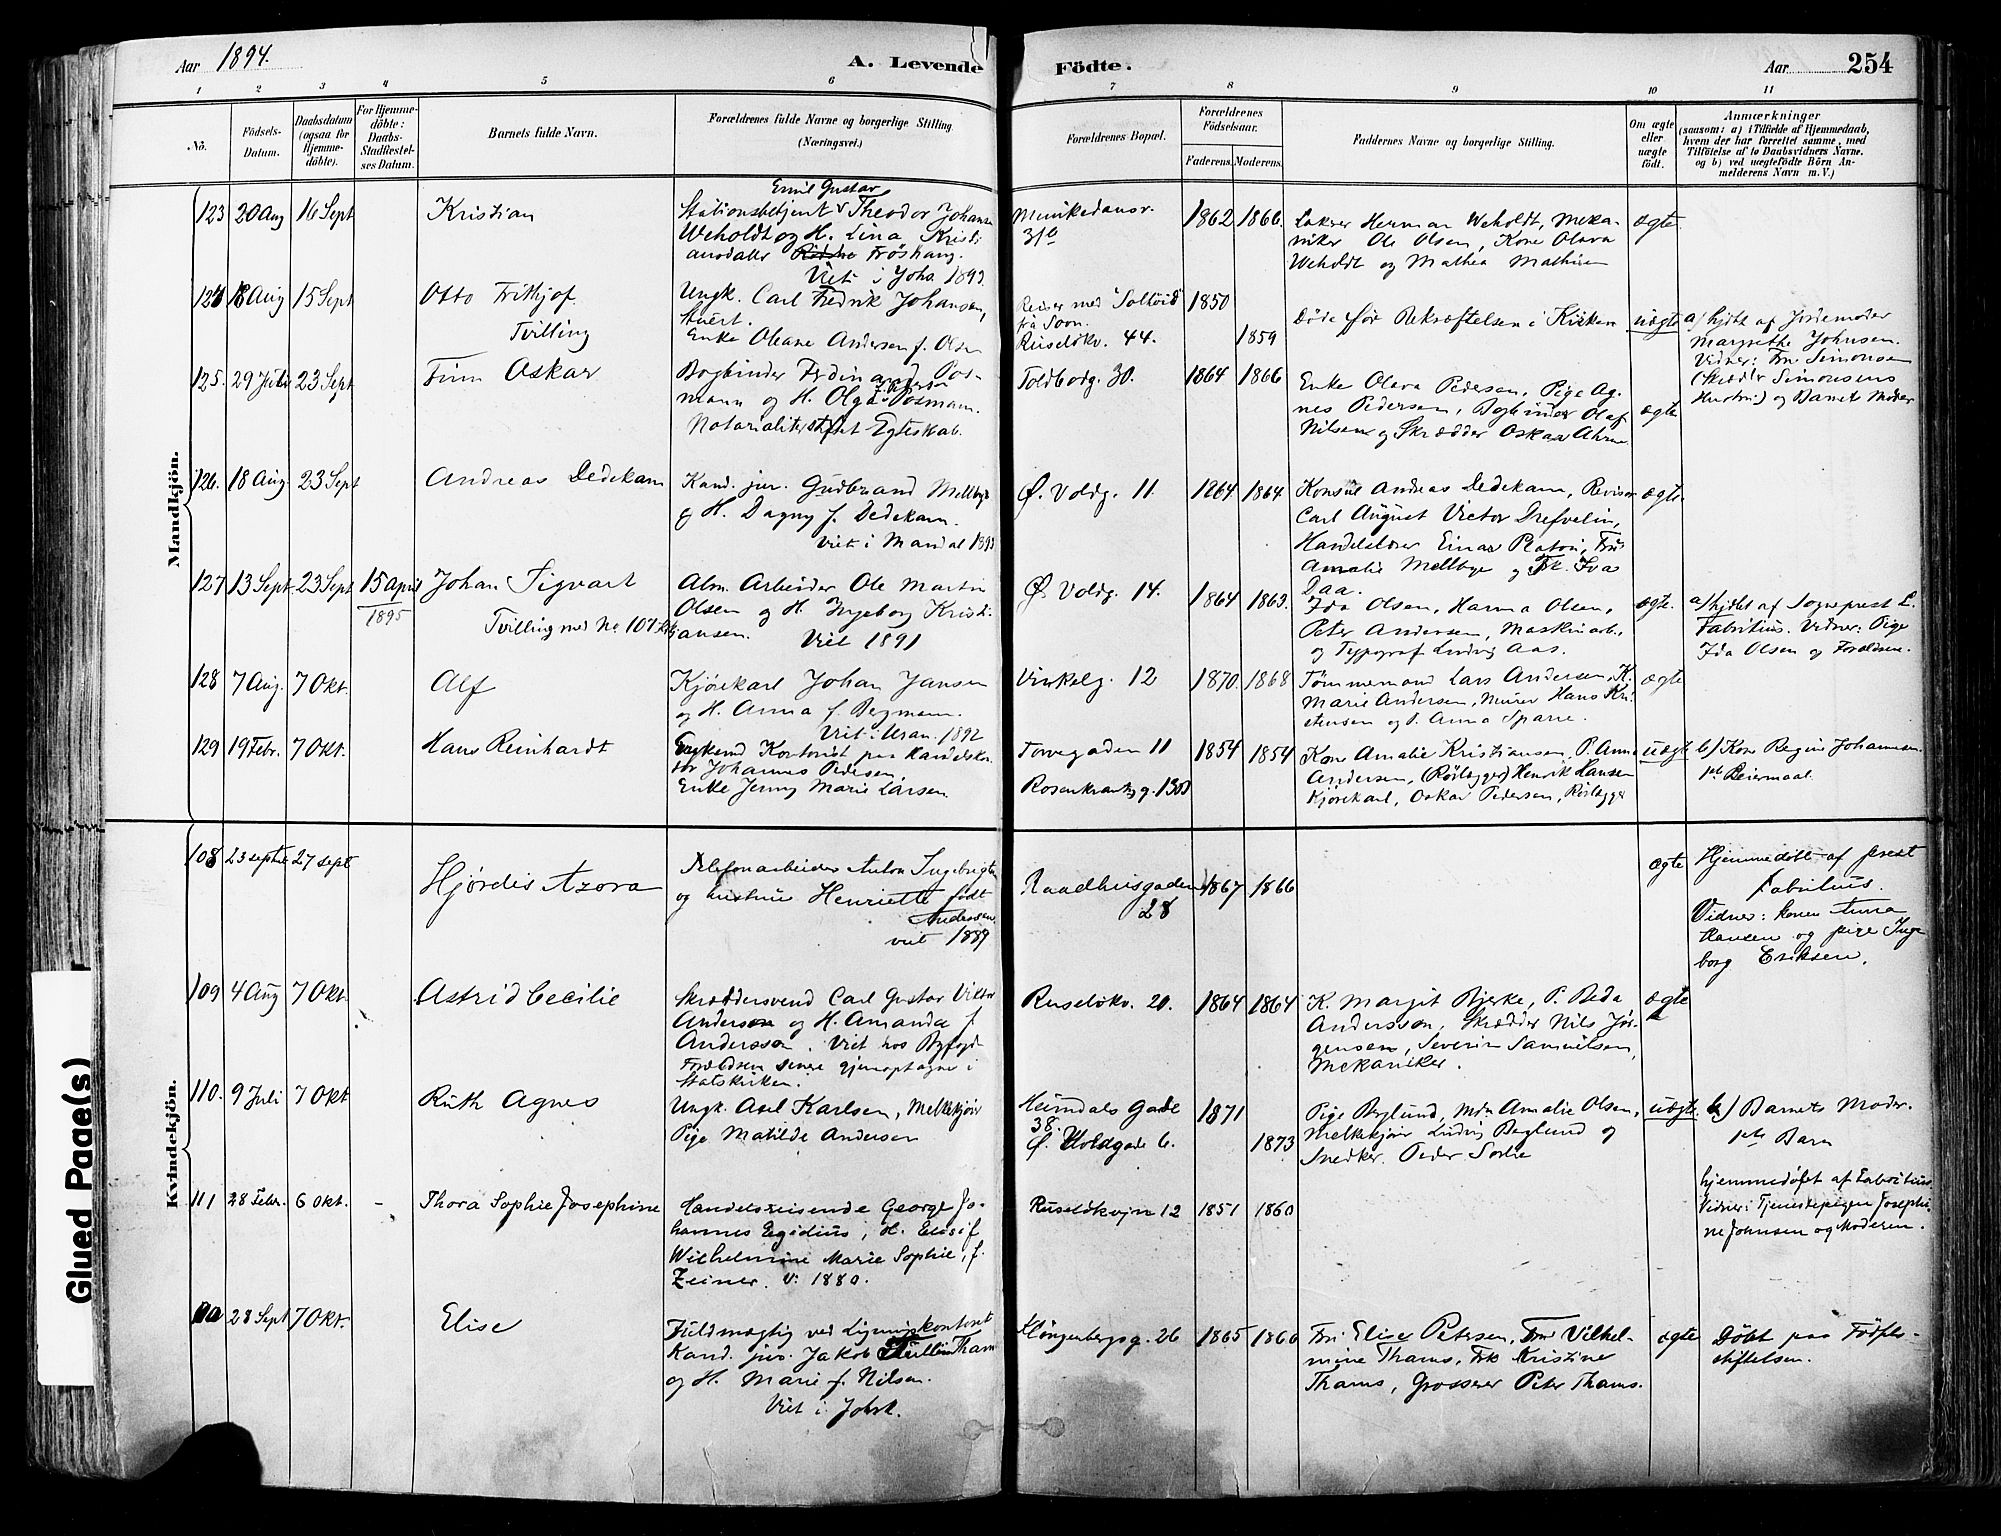 Aar 1894.
A. Levende Födte.
Aar 254
1 2 3 4 5 6 7 8 9 10 11
No. Födsels-Datum. Daabsdatum (ogsaa for Hjemme-döbte). For Hjemme-döbte: Daabs-Stadfæstel-ses Datum. Barnets fulde Navn. Forældrenes fulde Navne og borgerlige Stilling. (Næringsvei.) Forældrenes Bopæl. Forældrenes Födselsaar. Faderens. Moderens. Faddernes Navne og borgerlige Stilling. Om ægte eller uægte födt. Anmærkninger (saasom: a) i Tilfælde af Hjemmedaab, hvem der har forrettet samme, med Tilföielse af to Daabsvidners Navne. og b) ved uægtefödte Börn An-melderens Navn m. V.)
Mandkjön.
123 20 Aug 16 Sept Kristian
Emil Gustav
Stationsbetjent Theodor Johansen
Weholdt og H. Lina Kristi
ansdatter Fröshaug.
Viet i Joha. 1893
Munkedamsv.
31b
1862 1866.
Lakerer Herman Weholdt, Meka-
niker Ole Olsen, Kone Olava
Weholdt og Mathea Mathisen
ægte
124 18 Aug 15 Sept Otto Frithjof
Tvilling
Ungk. Carl Fredrik Johansen,
Stuert.
Enke Oleane Andersen f. Olsen
Reiser med "Soltvid"
fra Soon.
Ruselökv. 44.
1850
1859
Döde för Bekræftelsen i Kirken
uægte
a) hjdbt af Jordemoder
Margrethe Johnsen.
Vidner: Fru Simonsen
(Skrædder Simonsens
Hustru) og Barnets Moder
125. 29 Juli 23 Sept Finn Oskar
Bogbinder Ferdinand Pos-
mann og H. Olga Posmann.
Notarialiter stiftet Egteskab.
Toldbodg. 30. 1864 1866
Enke Olava Pedersen, Pige Ag-
nes Pedersen, Bogbinder Olaf
Nilsen og Skrædder Oskar
ægte
126. 18 Aug. 23 Sept Andreas Dedekam
Kand. jur. Gudbrand Mellbye
og H. Dagny f. Dedekam.
Viet i Mandal 1893
Ø. Voldg. 11. 1864 1864
Konsul Andreas Dedekam, Revisor
Carl August Victor Drefvelin,
Handelslærer Einar Platou, Fru
Amalie Mellbye og Frk. Eva
Daa.
ægte
127 13 Sept 23 Sept 15 April
1895
Johan Sigvart
Tvilling med No 107
Alm. Arbeider Ole Martin
Olsen og H. Ingeborg Kristi-
ansen. Viet 1891
Ø. Voldg. 14. 1864 1863.
Ida Olsen, Hanna Olsen,
Peter Andersen, Maskinarb.,
og Typograf Ludvig Aas.
ægte.
a) hjdbt af Sogneprest L.
Fabritius. Vidner: Pige
Ida Olsen og Forældrene.
128 7 Aug. 7 Okt. Alf
Kjörekarl Johan Jansen
og H. Anna f. Bergmann.
Viet i Uran. 1892
Vinkelg. 12 1870. 1868
Tömmermand Lars Andersen, K.
Marie Andersen, Murer Hans Kri-
stensen og P. Anna Sparre.
ægte
129 19 Febr. 7 Okt. Hans Reinhardt
Enkemd Kontorist paa Handelskon-
tor Johannes Pedersen
Enke Jenny Marie Larsen.
Torvegaden 11
Rosenkrantzg. 13
1854 1854
Kone Amalie Kristiansen, P. Anna
Andersen, (Rörlægger) Henrik Hansen
Kjörekarl, Oskar Pedersen, Rörlægger
uægte
b) Kone Regine Johannesen
1ste Leiermaal.
Kvindekjön.
108 23 septbr 27 sept Hjørdis Azora
Telefonarbeider Anton Ingebrigtsen
og hustru Henriette födt
Andersen.
viet 1889
Raadhusgaden
28
1867 1866
ægte
Hjemmedöbt af prest
Fabritius.
Vidner: konen Anna
Hansen og pige Inge
borg Eriksen.
109 4 Aug 7 Okt. Astrid Cecilie
Skræddersvend Carl Gustav Viktor
Andersson og H. Amanda f.
Andersson. Viet hos Byfogd
Forældrene senere gjenoptagne i
Statskirken.
Ruselökv. 20. 1864 1864
K. Margit Bjerke, P. Beda
Andersson, Skrædder Nils Jör-
gensen, Severin Samuelsen,
Mekaniker.
ægte
110. 9 Juli 7 Okt Ruth Agnes
Ungk. Axel Karlsen, Melkekjörer
Pige Matilde Andersen
Heimdals Gade
38.
Ø. Voldgade 6.
1871
1873
Pige Berglund, Mdm Amalie Olsen,
Melkekjörer Ludvig Berglund og
Snedker Peder Sörlie
uægte.
b) Barnets Moder.
1ste Barn
111 28 Febr. 6 Okt. - Thora Sophie Josephine
Handelsreisende George Jo-
hannes Egidius, H. Elise
Wilhelmine Marie Sophie, f.
Zeiner. V. 1880.
Ruselökvejn 12 1851 1860
hjemmedøbt af Fabritius
Vidner: Tjenestepigen Josephi
ne Johnsen og Moderen.
112 28 Sept 7 Okt. Elise
Fuldmægtig ved Ligningskontoret
Kand. jur. Jakob Tullin Thams
og H. Marie f. Nilsen.
Viet i Johk.
Klingenbergsg. 26 1865 1866
Fru Elise Petersen, Fru Vilhel-
mine Thams, Frk Kristine
Thams, Grosserer Peter Thams.
ægte
Döbt paa Födsels-
stiftelsen.
Glued Page(s)